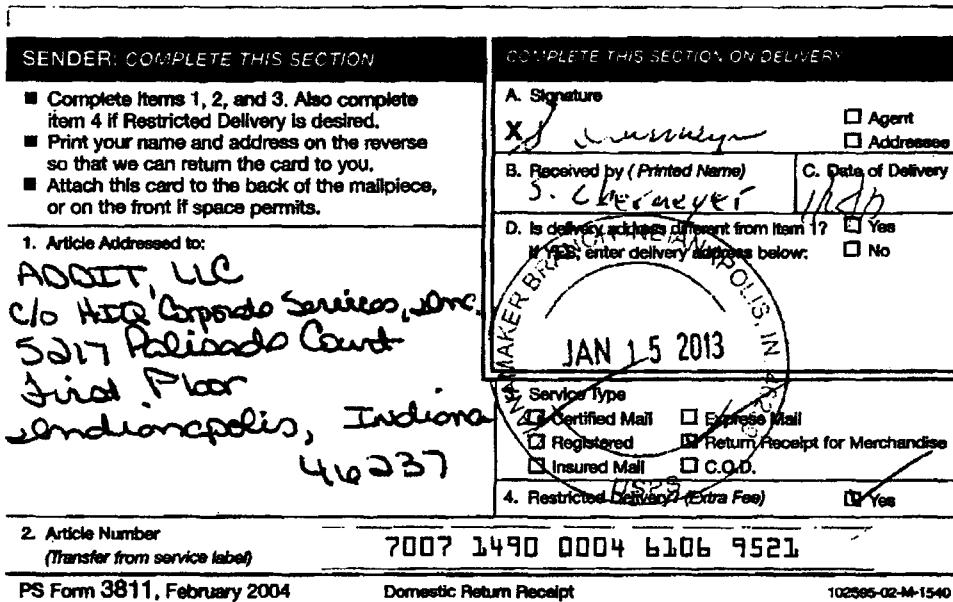 SENDER: COMPLETE THIS SECTION
■ Complete items 1, 2, and 3. Also complete
item 4 if Restricted Delivery is desired.
■ Print your name and address on the reverse
so that we can return the card to you.
■ Attach this card to the back of the mailpiece,
or on the front if space permits.
1. Article Addressed to:
ADDIT, LLC
c/o HIQ Corporate Services, Inc.
5217 Palisade Court
First Floor
Indianapolis, Indiana
46237
2. Article Number
(Transfer from service label)
7007 1490 0004 6106 9521
COMPLETE THIS SECTION ON DELIVERY
A. Signature
X
☐ Agent
☐ Addressee
B. Received by (Printed Name)
C. Date of Delivery
D. Is delivery address different from item 1? ☐ Yes
If YES, enter delivery address below: ☐ No
WANAMAKER BRANCH INDIANAPOLIS, IN
JAN 15 2013
USPS
3. Service Type
☐ Certified Mail ☐ Express Mail
☐ Registered ☐ Return Receipt for Merchandise
☐ Insured Mail ☐ C.O.D.
4. Restricted Delivery? (Extra Fee) ☐ Yes
PS Form 3811, February 2004
Domestic Return Receipt
102595-02-M-1540